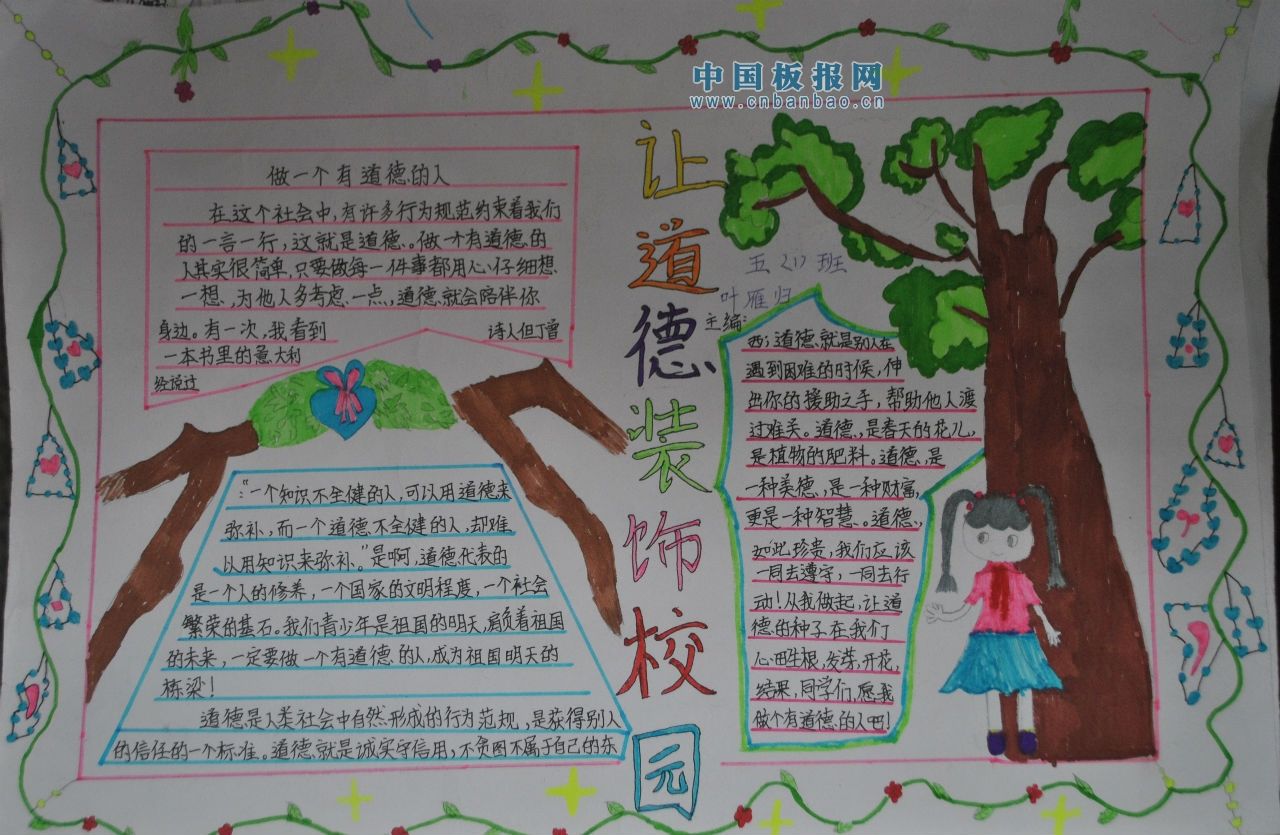 中国板报网
www.cnbanbao.cn
做一个有道德的人
在这个社会中,有许多行为规范约束着我们
的一言一行,这就是道德。做一个有道德的
人其实很简单,只要做每一件事都用心仔细想
一想,为他人多考虑一点,道德就会陪伴你
身边。有一次,我看到
诗人但丁曾
一本书里的意大利
经说过
:“一个知识不全健的人,可以用道德来
弥补,而一个道德不全健的人,却难
以用知识来弥补。”是啊,道德代表的
是一个人的修养,一个国家的文明程度,一个社会
繁荣的基石。我们青少年是祖国的明天,肩负着祖国
的未来,一定要做一个有道德的人,成为祖国明天的
栋梁!
道德是人类社会中自然形成的行为范规,是获得别人
的信任的一个标准。道德就是诚实守信用,不贪图不属于自己的东
让道德装饰校园
五〈1〉班
叶雁归
主编:
西;道德就是别人在
遇到困难的时候,伸
出你的援助之手,帮助他人渡
过难关。道德,是春天的花儿,
是植物的肥料。道德,是
一种美德,是一种财富,
更是一种智慧。道德,
如此珍贵,我们应该
一同去遵守,一同去行
动!从我做起,让道
德的种子在我们
心田生根,发芽,开花,
结果,同学们,愿我
做个有道德的人吧!